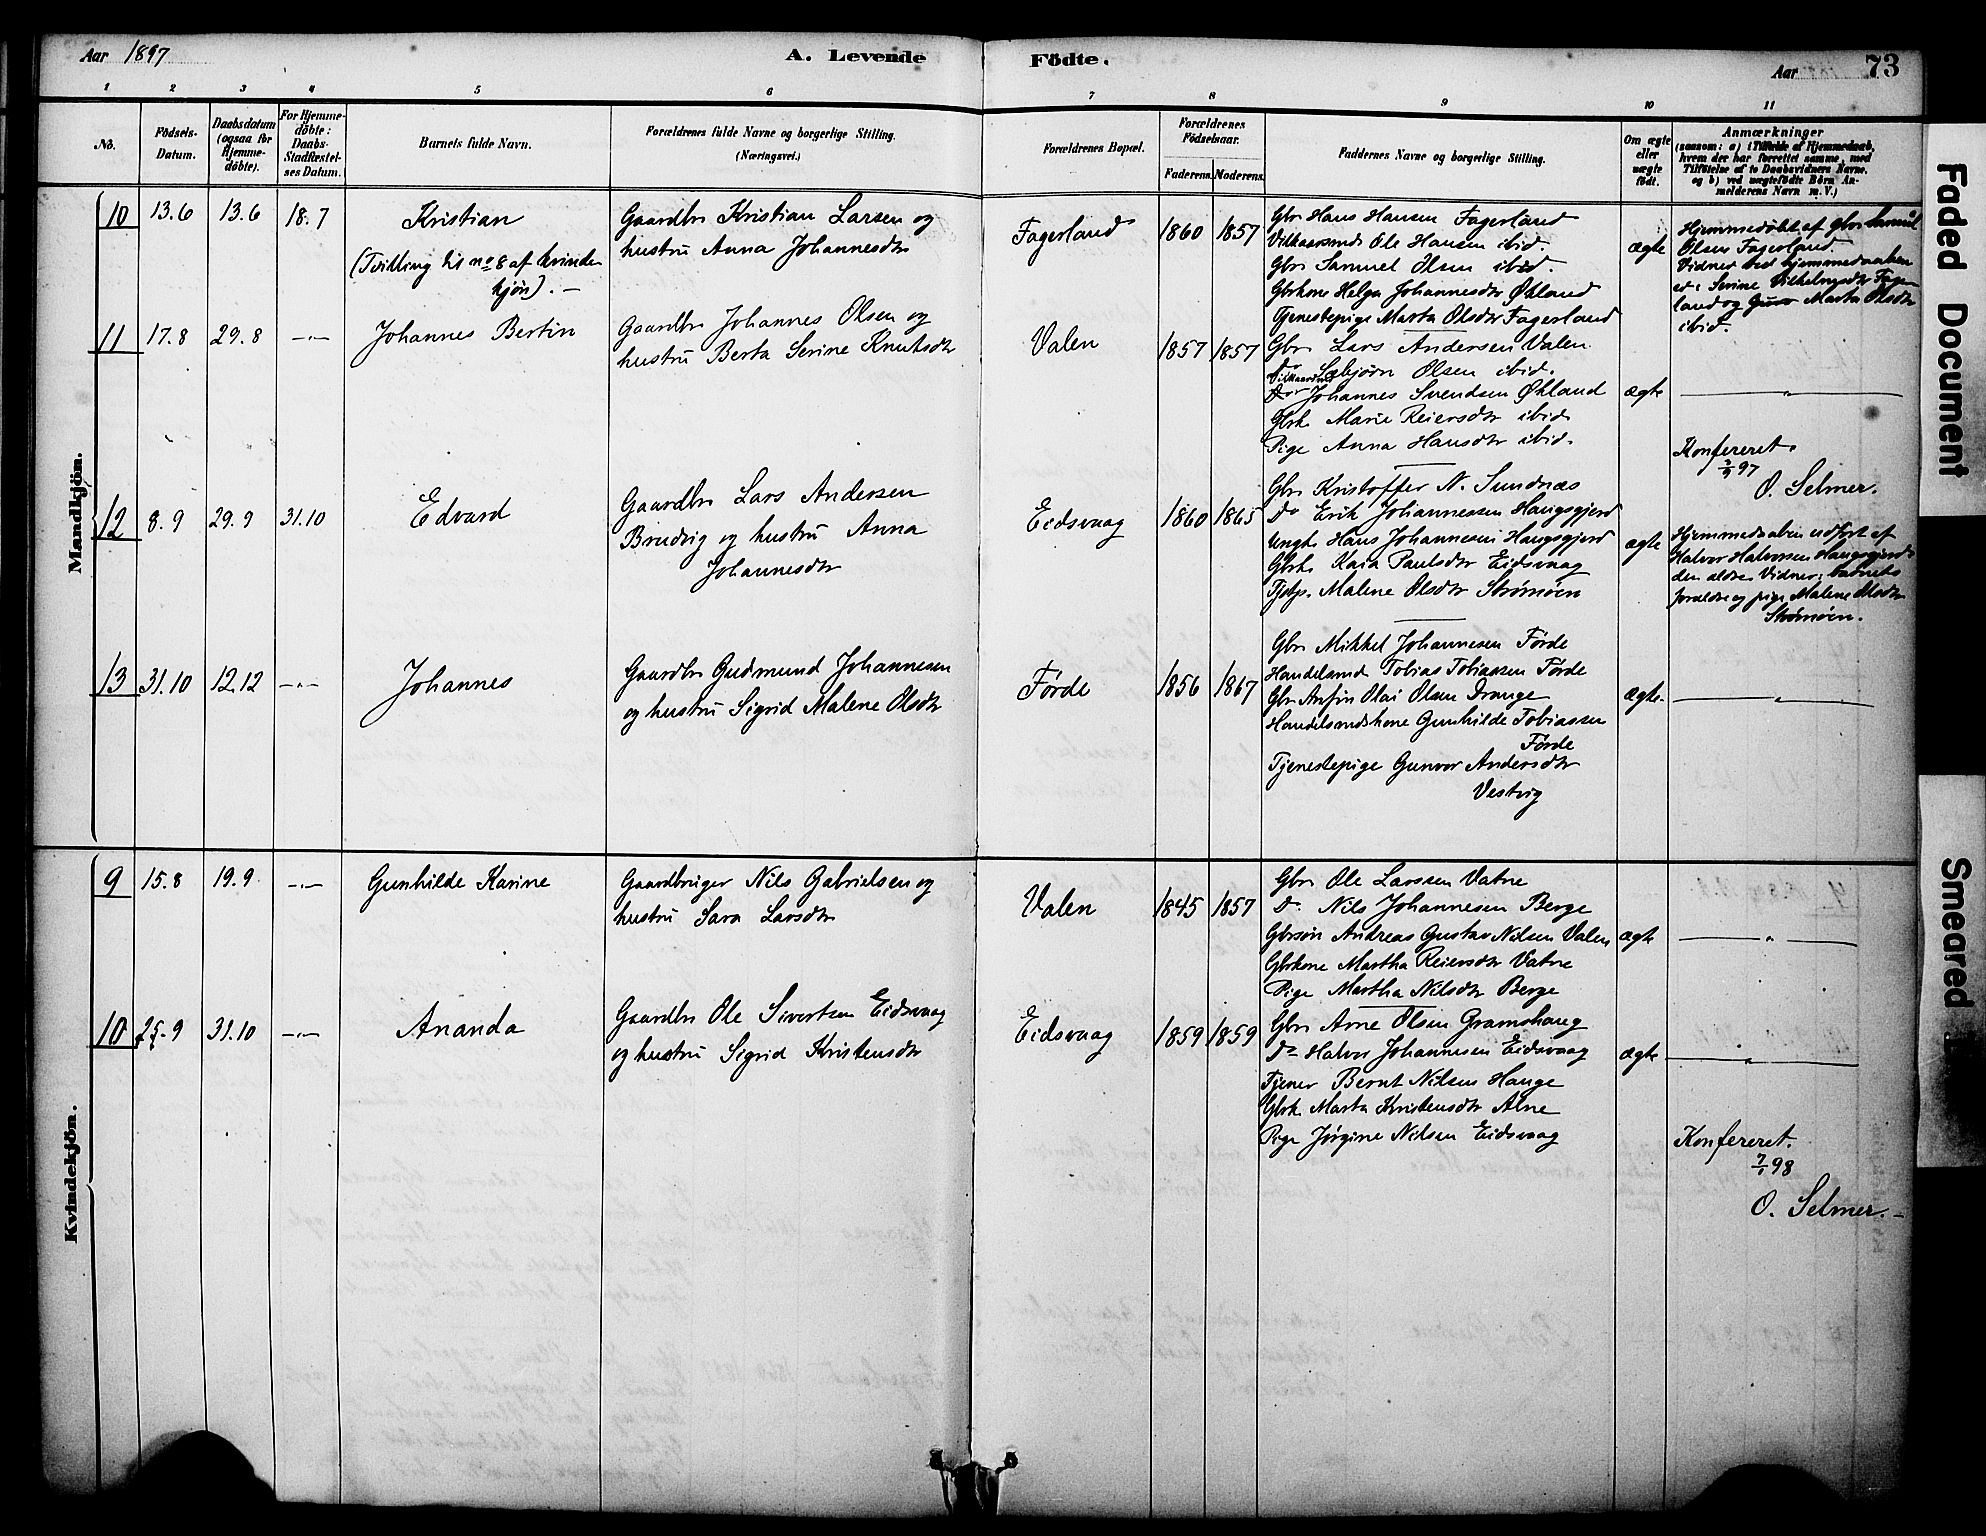 Aar 1897 A. Levende Födte. Aar 73
1 2 3 4 5 6 7 8 9 10 11
No.
Födsels-Datum.
Daabsdatum (ogsaa for Hjemmedöbte).
For Hjemmedöbte: Daabs-Stadfæstelses Datum.
Barnets fulde Navn.
Forældrenes fulde Navne og borgerlige Stilling.
(Næringsvei.)
Forældrenes Bopæl.
Forældrenes Födselsaar.
Faderens. Moderens.
Faddernes Navne og borgerlige Stilling.
Om ægte eller uægte födt.
Anmærkninger
(saasom: a) i Tilfælde af Hjemmedaab, hvem der har forrettet samme, med Tilföielse af to Daabsvidners Navne, og b) ved uægtefödte Börn Anmelderens Navn m. V.)
Mandkjön.
10 13.6 13.6 18.7 Kristian
(Tvilling til no 8 af kvinde
kjön). —
Gaardbr Kristian Larsen og
hustru Anna Johannesdtr
Fagerland 1860 1857
Gbr Hans Hansen Fagerland
Vilkaarsmd Ole Hansen ibid.
Gbr Samuel Olsen ibid.
Gbrkone Helga Johannesdtr Økland
Tjenestepige Marta Olsdtr Fagerland
ægte
Hjemmedøbt af Gbr Samuel
Olsen Fagerland
Vidner ved hjemmedaaben
er: Serine Vilhelmsdtr Fager
land og Marta Olsdtr
ibid.
11 17.8 29.8 —"— Johannes Bertin
Gaardbr Johannes Olsen og
hustru Berta Serine Knutsdtr
Valen 1857 1857
Gbr Lars Andersen Valen
Do Sæbjørn Olsen ibid.
Vilkaarsmd
Do Johannes Svendsen Økland
Gbrk Marie Reiersdtr ibid.
Pige Anna Hansdtr ibid.
ægte —"—
Konfereret.
97
O. Selmer.
12 8.9 29.9 31.10 Edvard
Gaardbr Lars Andersen
Brudvig og hustru Anna
Johannesdtr
Eidsvaag 1860 1865
Gbr Kristoffer N. Sundnæs
Do Erik Johannessen Haugsgjerd
Ungk Hans Johannesen Haugsgjerd
Gbrk Kaia Paulsdtr Eidsvaag
Tjp. Malene Olsdtr Strømøen
ægte
Hjemmedaaben udført af
Halvor Halvorsen Haugsgjerd
den ældre. Vidner: barnets
forældre og pige Malene Olsdtr
Strømøen.
13 31.10 12.12 —"— Johannes
Gaardbr Gudmund Johannesen
og hustru Sigrid Malene Olsdtr
Førde 1856 1867
Gbr Mikkel Johannesen Førde
Handelsmd Tobias Tobiassen Førde
Gbr Anfin Olai Olsen Drange
Handelsmdskone Gunhilde Tobiassen
Førde
Tjenestepige Gunvor Andersdtr
Vestvig
ægte. —"—
Kvindekjön.
9 15.8 19.9 —"— Gunhilde Karine
Gaardbruger Nils Gabrielsen og
hustru Sara Larsdtr
Valen 1845 1857
Gbr Ole Larssen Vatne
Do Nils Johannesen Berge
Gbrsøn Andreas Gustav Nilsen Valen
Gbrkone Martha Reiersdtr Vatne
Pige Martha Nilsdtr Berge
ægte —"—
10 25.9 31.10 —"— Ananda
Gaardbr Ole Sivertsen Eidsvaag
og hustru Sigrid Kristensdtr
Eidsvaag 1859 1859
Gbr Arne Olsen Gramshaug
Do Halvor Johannesen Eidsvaag
Tjener Bernt Nilsen Hauge
Gbrk Marta Kristensdtr Alne
Pige Jørgine Nilsen Eidsvaag
ægte —"—
Konfereret.
7/1 98
O. Selmer.
Faded Document
Smeared